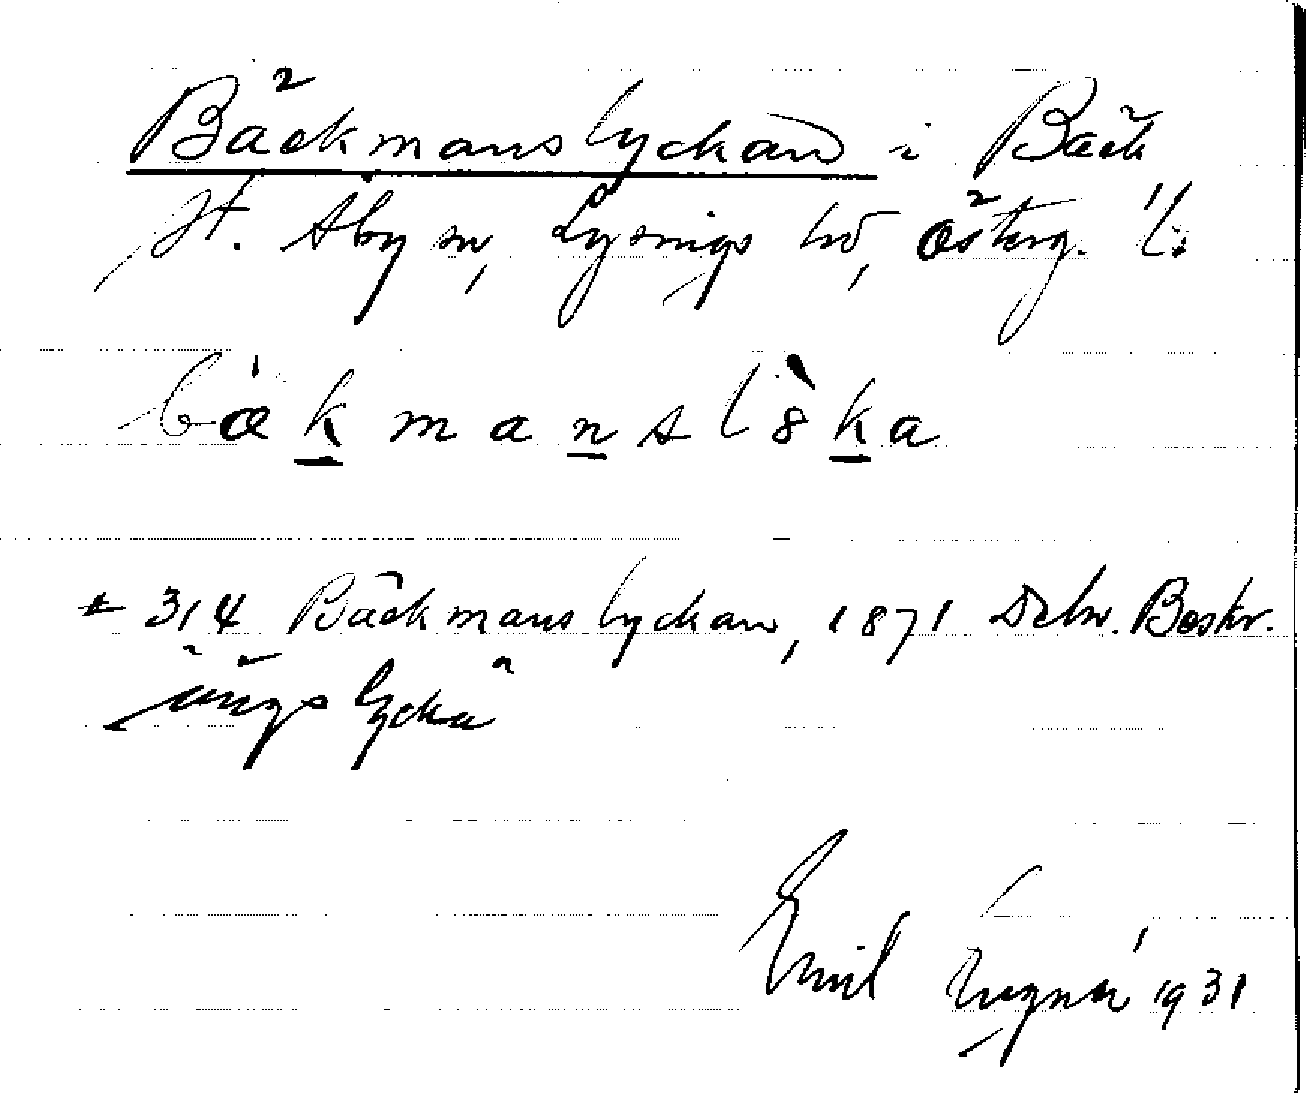 Bäckmanslyckan i Bäck
St. Åby sn, Lysings hd, Österg. l:
bäkmanslöka
314 Bäckmanslyckan, 1871 Beskr.
ängslycka
Emil 1931